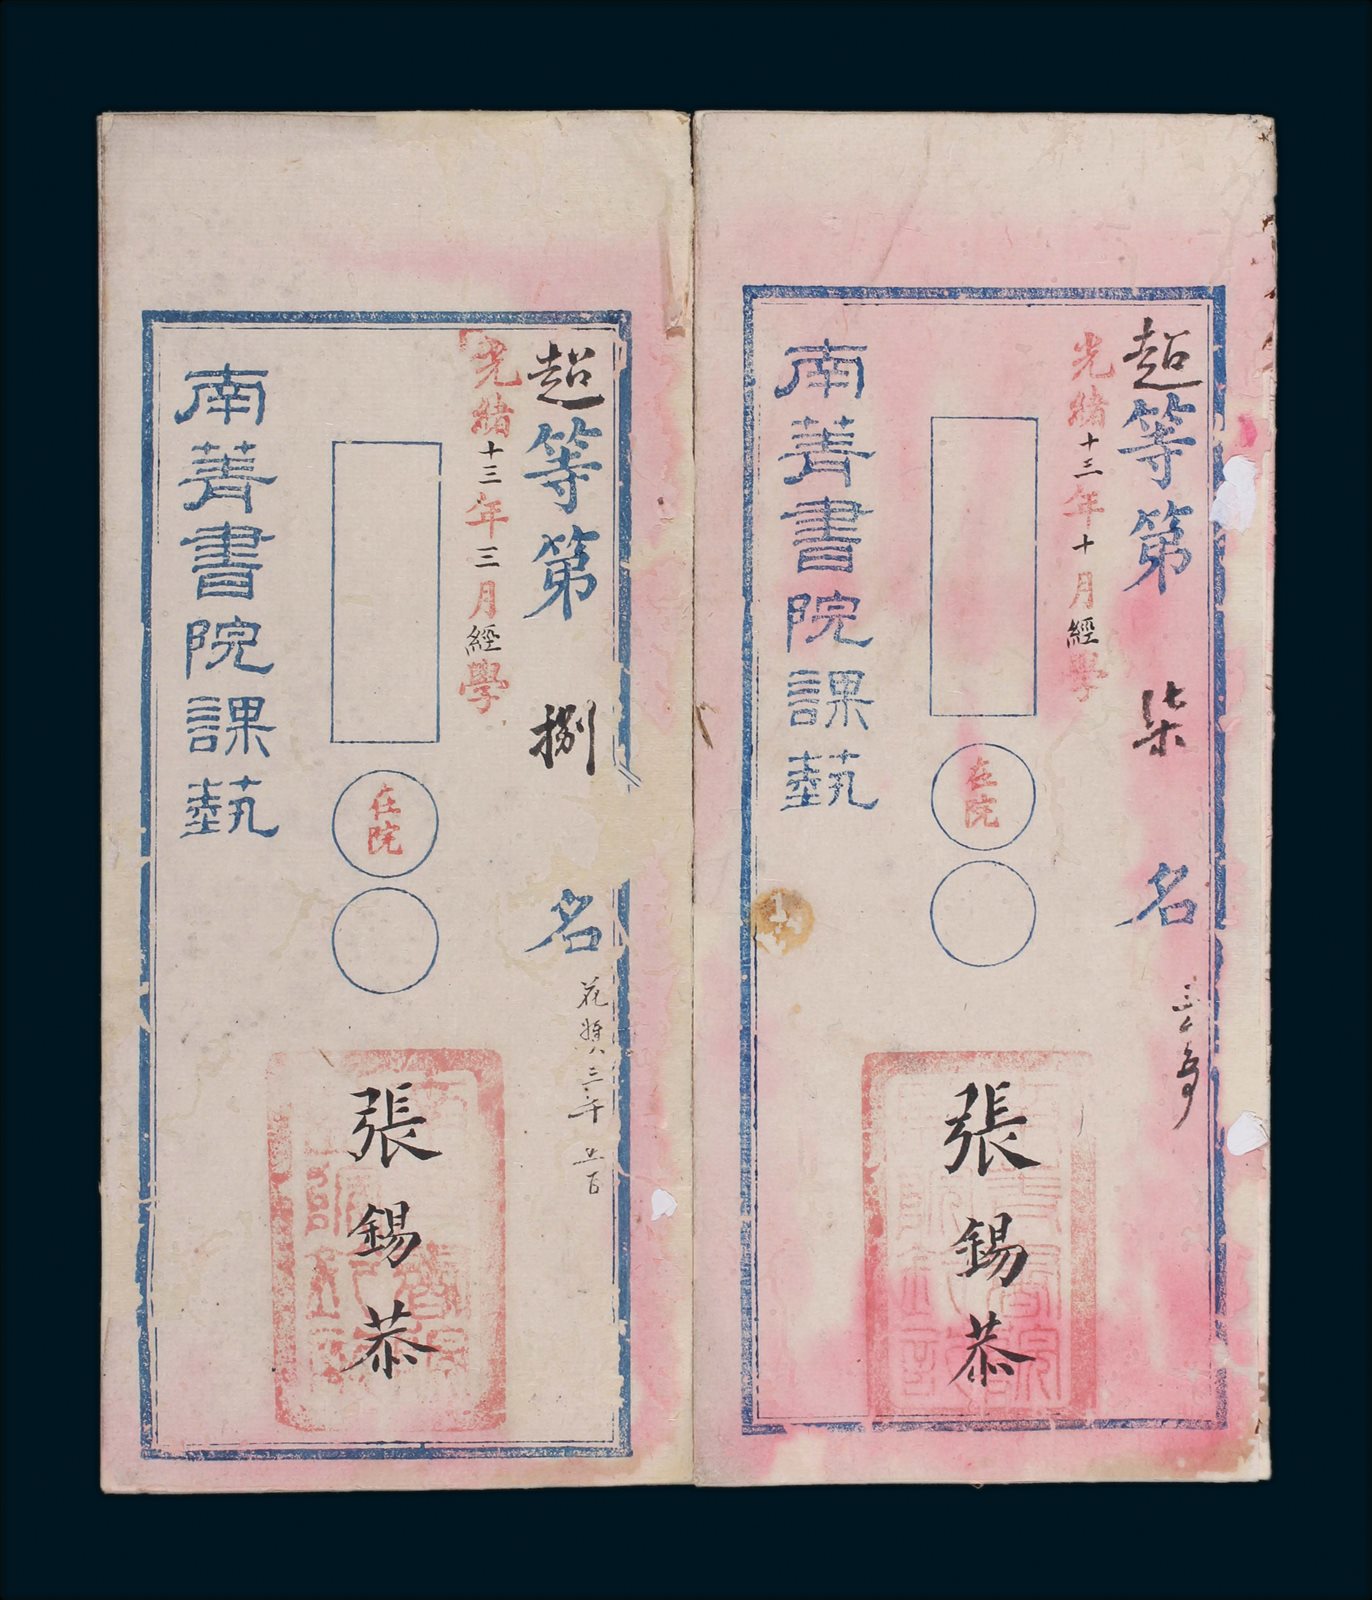 超等第柒名
三千文
光緒十三年十月經學
在院
張錫恭
南菁書院課藝
超等第捌名
花獎三千五百
光緒十三年三月經學
在院
張錫恭
南菁書院課藝